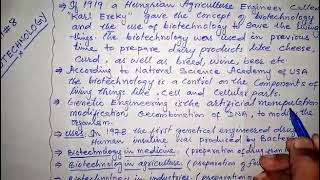 # 8
BIOTECHNOLOGY
→ In 1919 a Hungarian Agriculture Engineer Called
"Karl Ereky" gave the concept of Biotechnology
and the use of biotechnology to save the living
things. The biotechnology was used in previous
time to prepare dairy products like cheese,
curd, as well as bread, wine, beer etc.
→ According to National Science Academy of USA
the biotechnology is a control on the Components of
living things like cell and Cellular parts.
→ Genetic Engineering is the artificial manipulation
modification, recombination of DNA, to modify
the
uses: In 1978 the first genetical engineered drug
Human insuline was produced by Bacteria
→ Biotechnology in medicine (preparation of
→ Biotechnology in agriculture (preparation of
→ Biotechnology in industries (preparation of